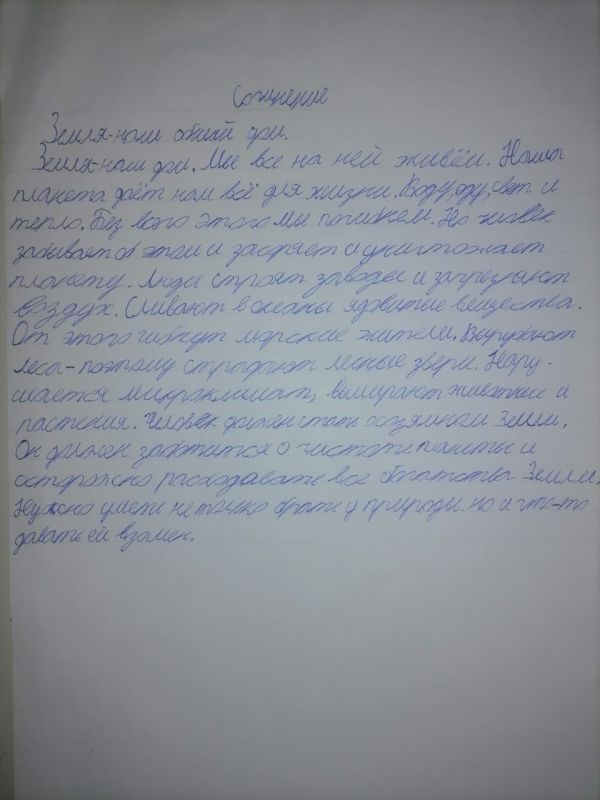 Сочинение
Земля-наш общий дом.
Земля-наш дом. Мы все на ней живём. Наша
планета даёт нам всё для жизни. Воду, еду, свет и
тепло. Без всего этого мы погибнем. Но человек
забывает об этом и засоряет и уничтожает
планету. Люди строят заводы и загрезняют
воздух. Сливают в океаны ядовитые вещества.
От этого гибнут морские жители. Вырубают
леса-поэтому страдают лесные звери. Нару-
шается микроклимат, вымирают животные и
растения. Человек должен стать хозяином Земли.
Он должен заботится о чистоте планеты и
осторожно расходавать все богатства Земли.
Нужно уметь не только брать у природы. но и что-то
давать ей взамен.